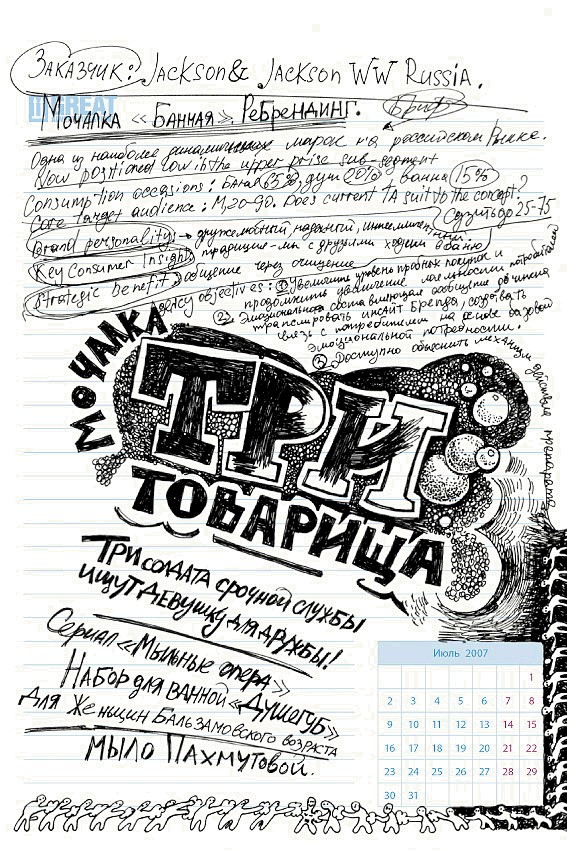 Заказчик: Jackson & Jackson WW Russia.
Мочалка «Банная» Ребрендинг. Бриф
Одна из наиболее динамичных марок на российском рынке.
Now positioned low in the upper prise sub-segment
Consumption occasions: Баня 65% душ 20% ванна 15%
Core target audience: М, 20-90. Does current TA suit to the concept?
Сузить до 25-75
Brand personality → дружелюбный, надежный, интеллигентный
Key Consumer Insight традиция - мы с друзьями ходим в баню
Strategic Benefit общение через очищение
Agency objectives: ① Увеличить уровень пробных покупок и
продолжить увеличение лояльности потребителей
② Эмоциональная составляющая сообщение до читателя
транслировать инсайт Бренда, создавать
связь с потребителем на основе базовой
эмоциональной потребности.
③ Доступно объяснить механизм действия препарата
Мочалка
ТРИ
ТОВАРИЩА
Три солдата срочной службы
ищут девушку для дружбы!
Сериал «Мыльные опера»
Набор для ванной «Душегуб»
Для женщин Бальзамовского возраста
Мыло Пахмутовой.
Июль 2007
1
2 3 4 5 6 7 8
9 10 11 12 13 14 15
16 17 18 19 20 21 22
23 24 25 26 27 28 29
30 31